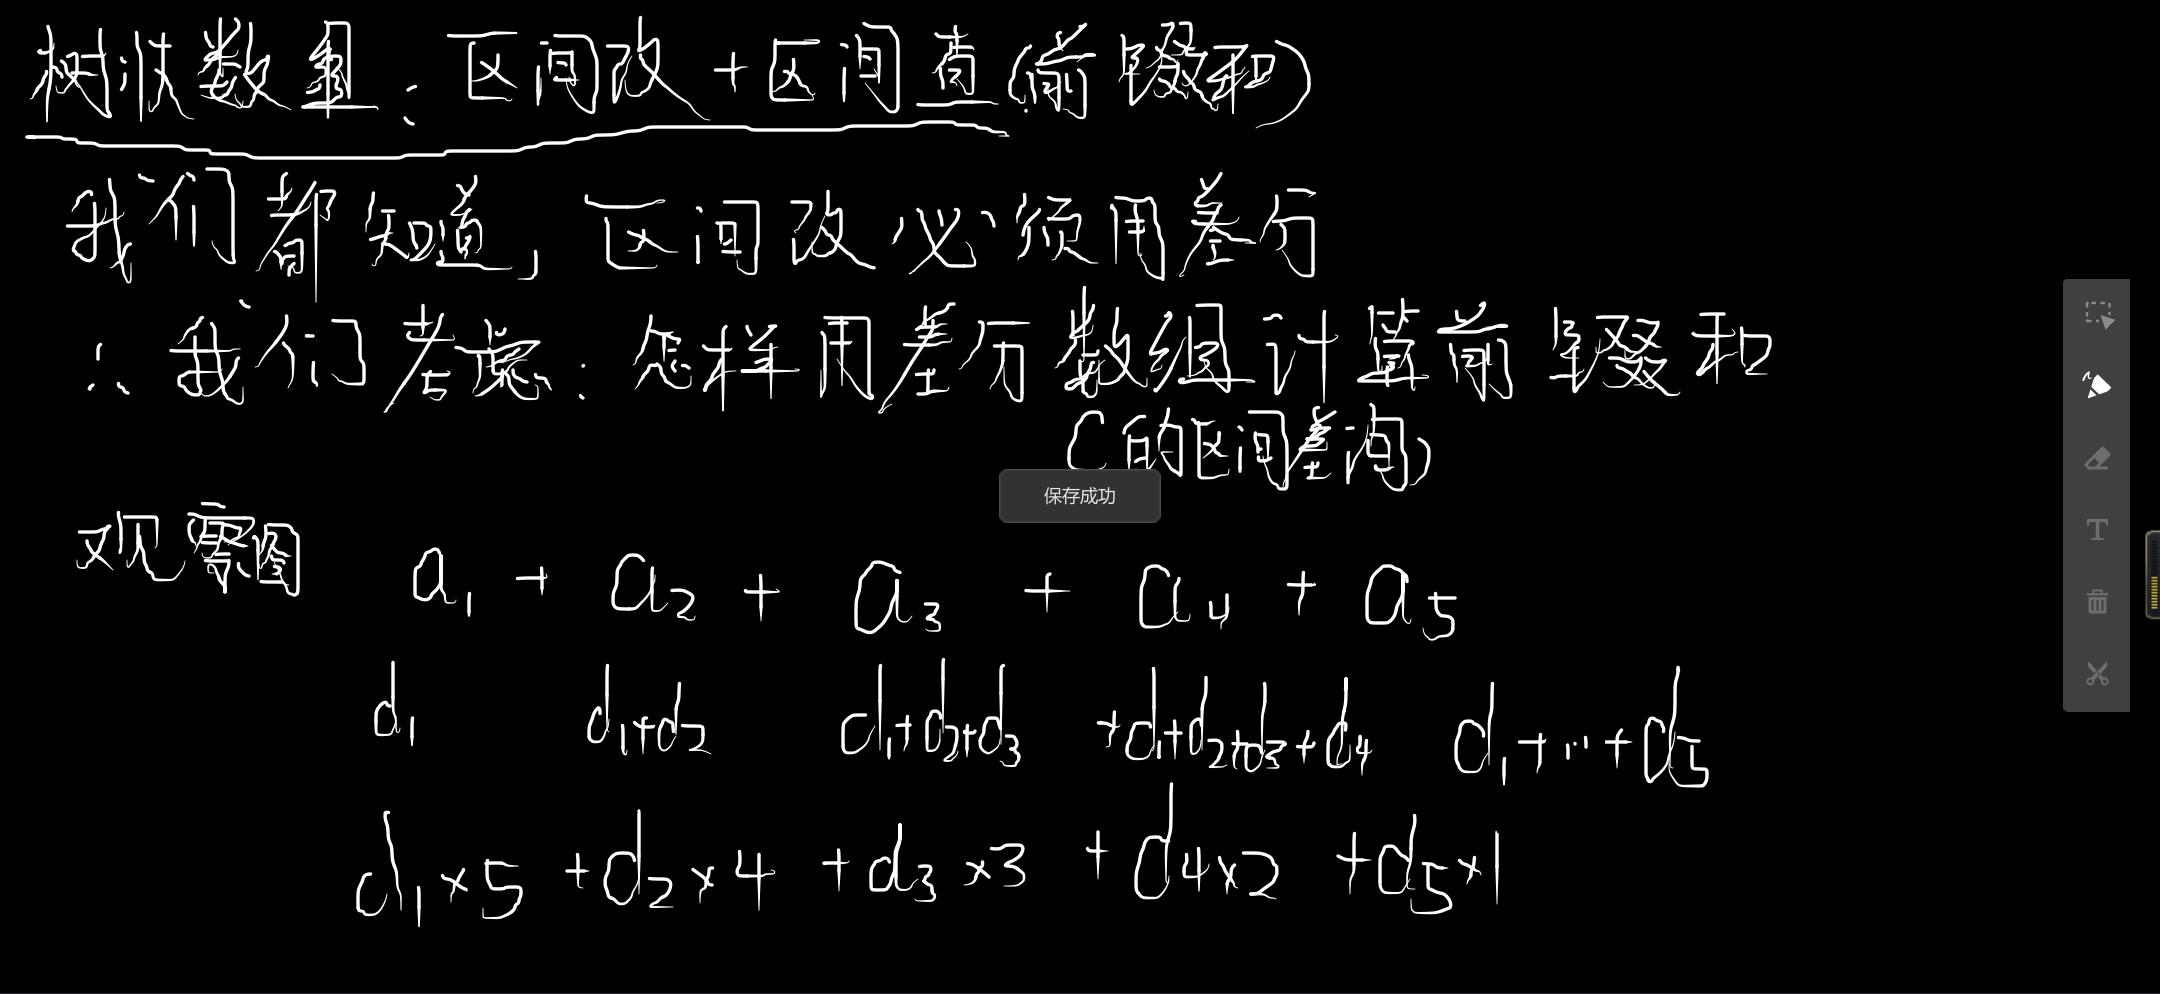 树状数组：区间改+区间查(前缀和)
我们都知道，区间改必须用差分
∴我们考虑：怎样用差分数组计算前缀和
(的区间查询)
保存成功
观察图 a1 + a2 + a3 + a4 + a5
d1 d1+d2 d1+d2+d3 +d1+d2+d3+d4 d1+…+d5
d1×5 +d2×4 +d3×3 +d4×2 +d5×1
T